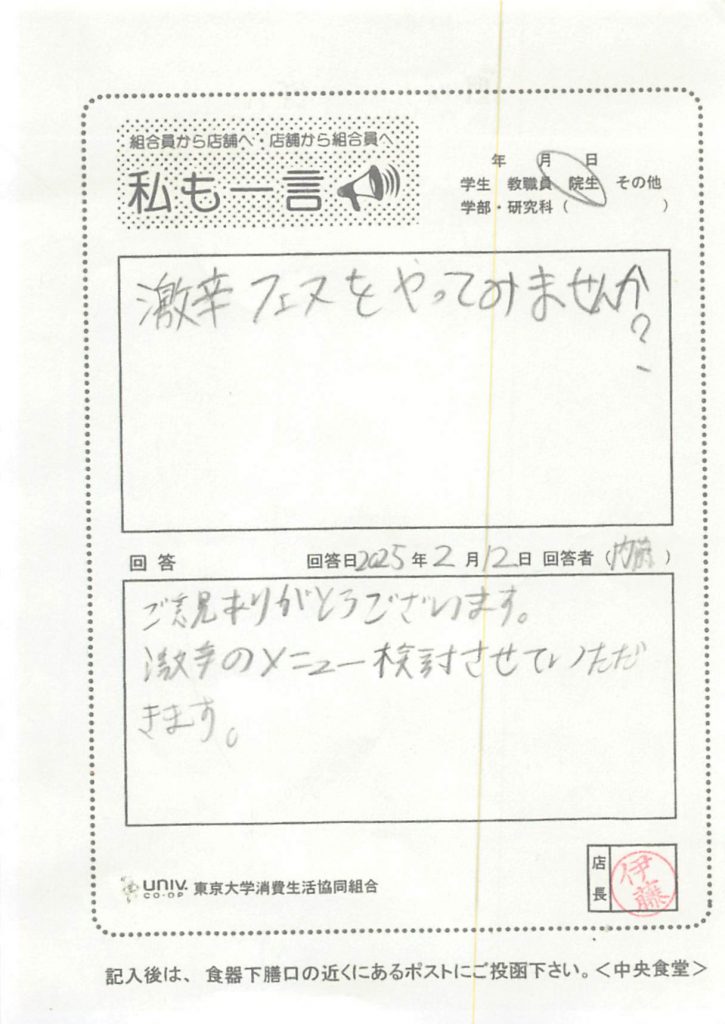 組合員から店舗へ・店舗から組合員へ
私も一言
年 月 日
学生 教職員 院生 その他
学部・研究科( )
激辛フェスをやってみませんか?
回答 回答日2025年2月12日 回答者(内藤)
ご意見ありがとうございます。
激辛のメニュー検討させていただ
きます。
店長
伊藤
UNIV. CO-OP 東京大学消費生活協同組合
記入後は、食器下膳口の近くにあるポストにご投函下さい。<中央食堂>